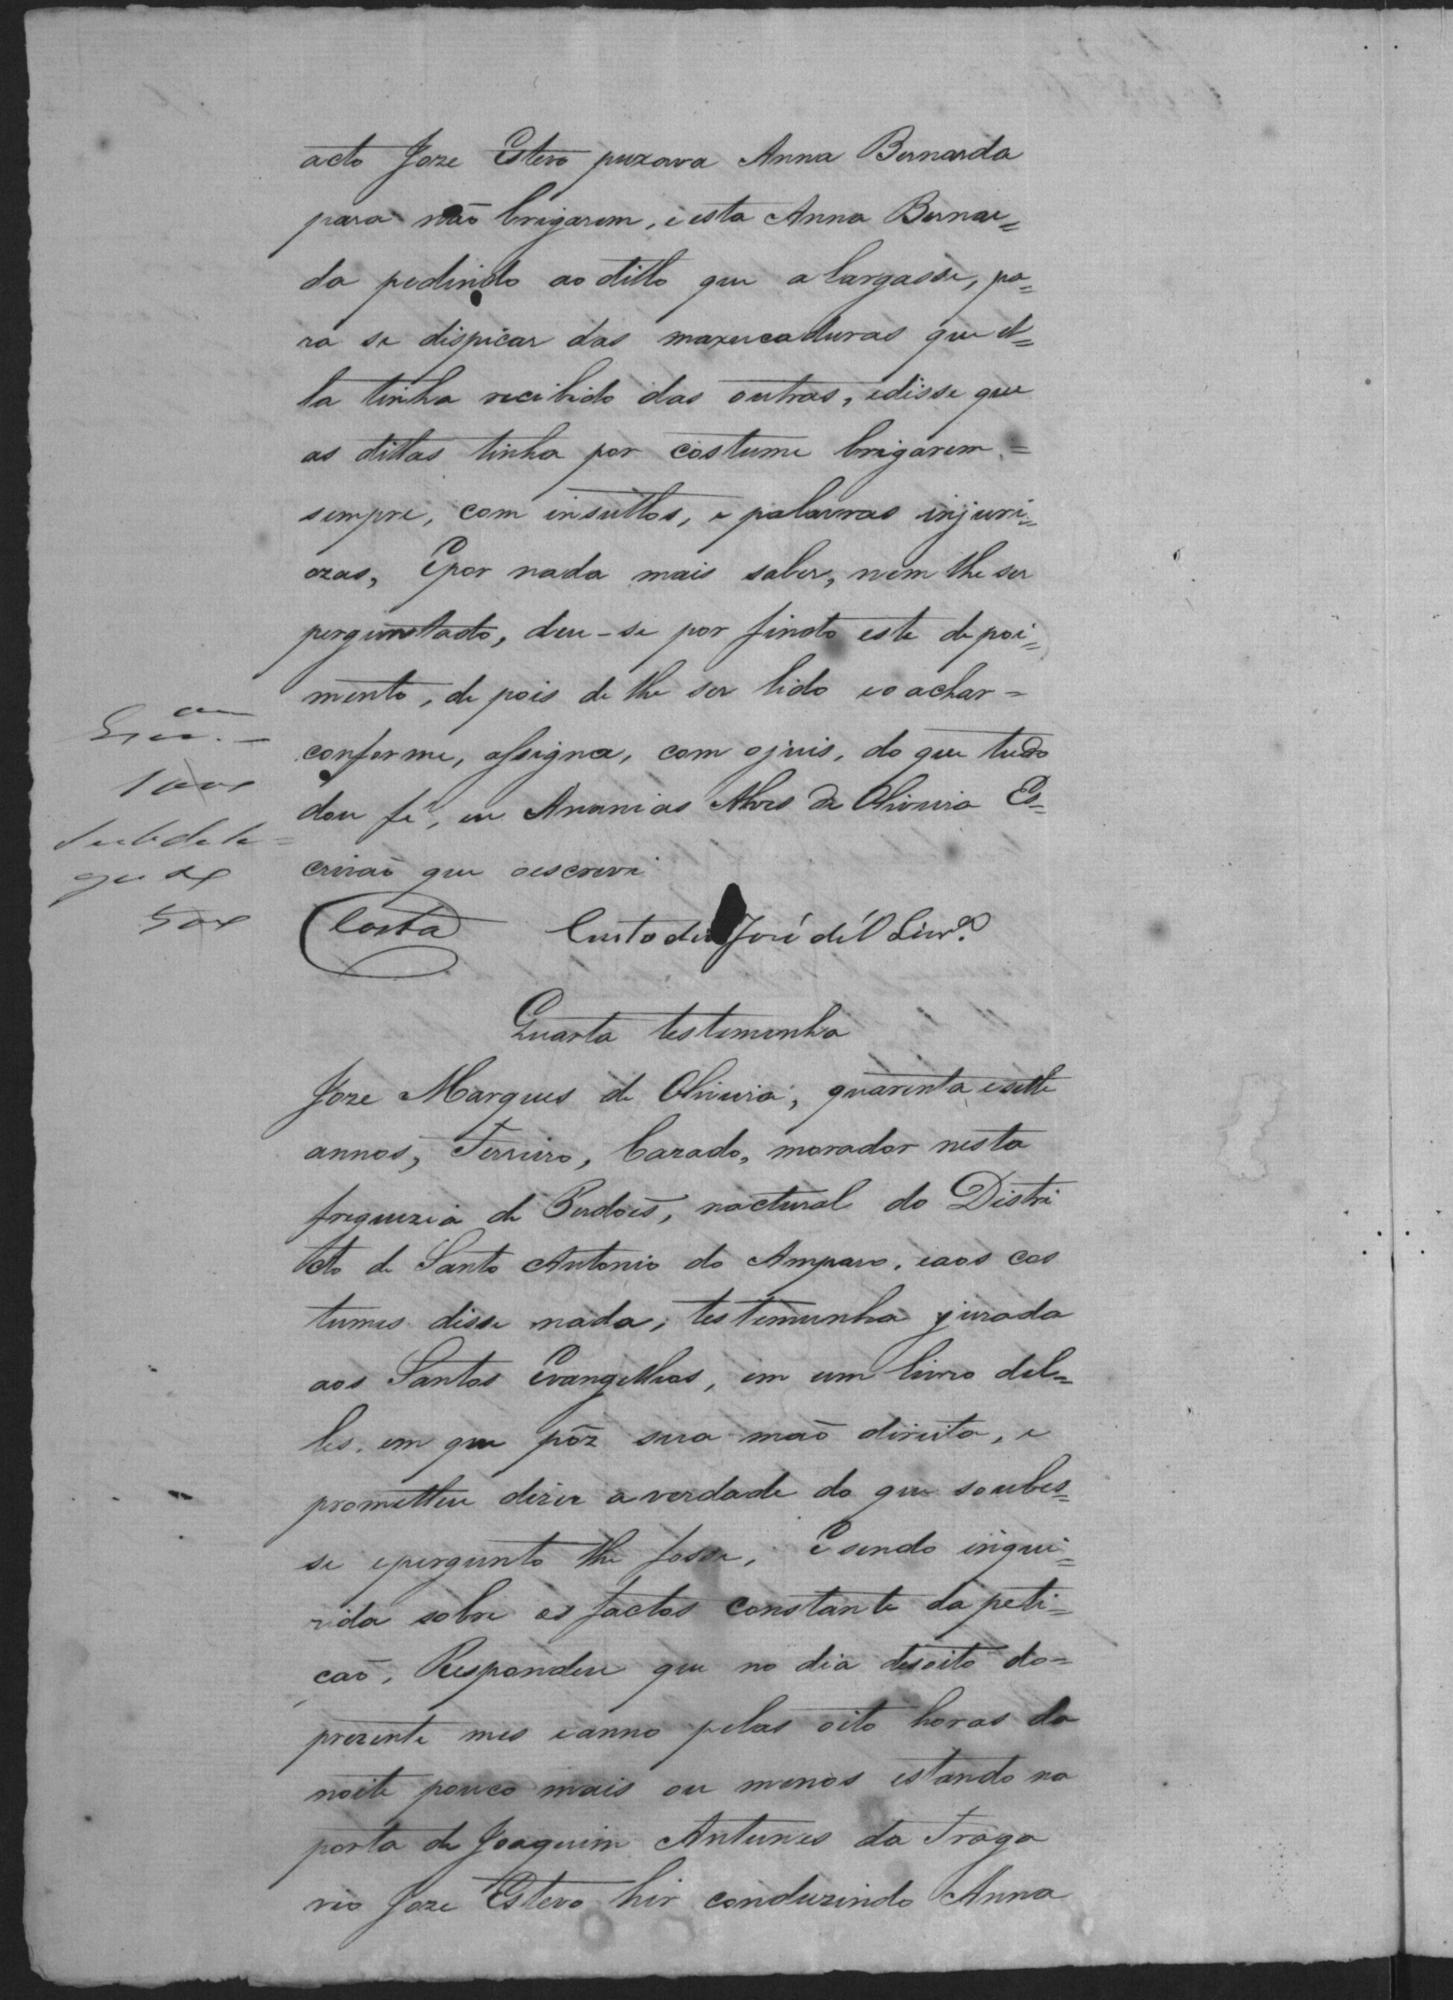 acto Joze Estevo puxava Anna Bernarda
para não brigarem, e esta Anna Bernar=
da pedindo ao ditto que a largasse, pa=
ra se dispicar das maxucaduras que el=
la tinha recibido das outras, edisse que
as dittas tinha por costume brigarem =
sempre, com insultos, e palavras injuri=
ozas, Epor nada mais saber, nem lhe ser
perguntado, deu-se por findo este depoi=
mento, de pois de lhe ser lido eo achar =
conforme, assigna, com ojuis, do que tudo
dou fé, eu Ananias Alves de Oliveira Es=
crivaõ que oescrevi
Costa Custodio José d'Olivrª
Quarta testemunha
Joze Marques de Oliveira, quarenta esette
annos, Ferreiro, Cazado, morador nesta
freguezia de Perdoẽs, nactural do Distri
cto de Santo Antonio do Amparo, eaos cos
tumes disse nada, testemunha jurada
aos Santos Evangelhos, em um livro del=
les, em que pôz sua maõ direita, e
prometteu dizer a verdade do que soubes=
se epergunto lhe fosse, E sendo inque=
rida sobre os factos constante da peti=
caõ, Respondeu que no dia desoito do=
prezente mes eanno pelas oito horas da
noite pouco mais ou menos estando na
porta de Joaquim Antunes da Fraga
vio Joze Estevo hir conduzindo Anna